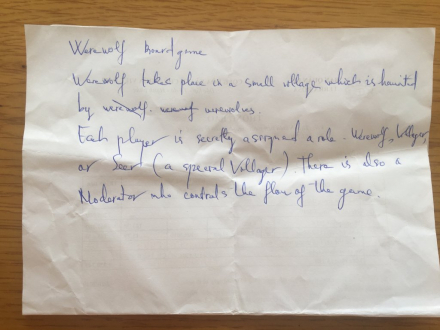 Werewolf boardgame
Werewolf takes place in a small village which is haunted
by werewolf. werewolf werewolves.
Each player is secretly assigned a role. Werewolf, Villager,
or Seer (a special Villager). There is also a
Moderator who controls the flow of the game.